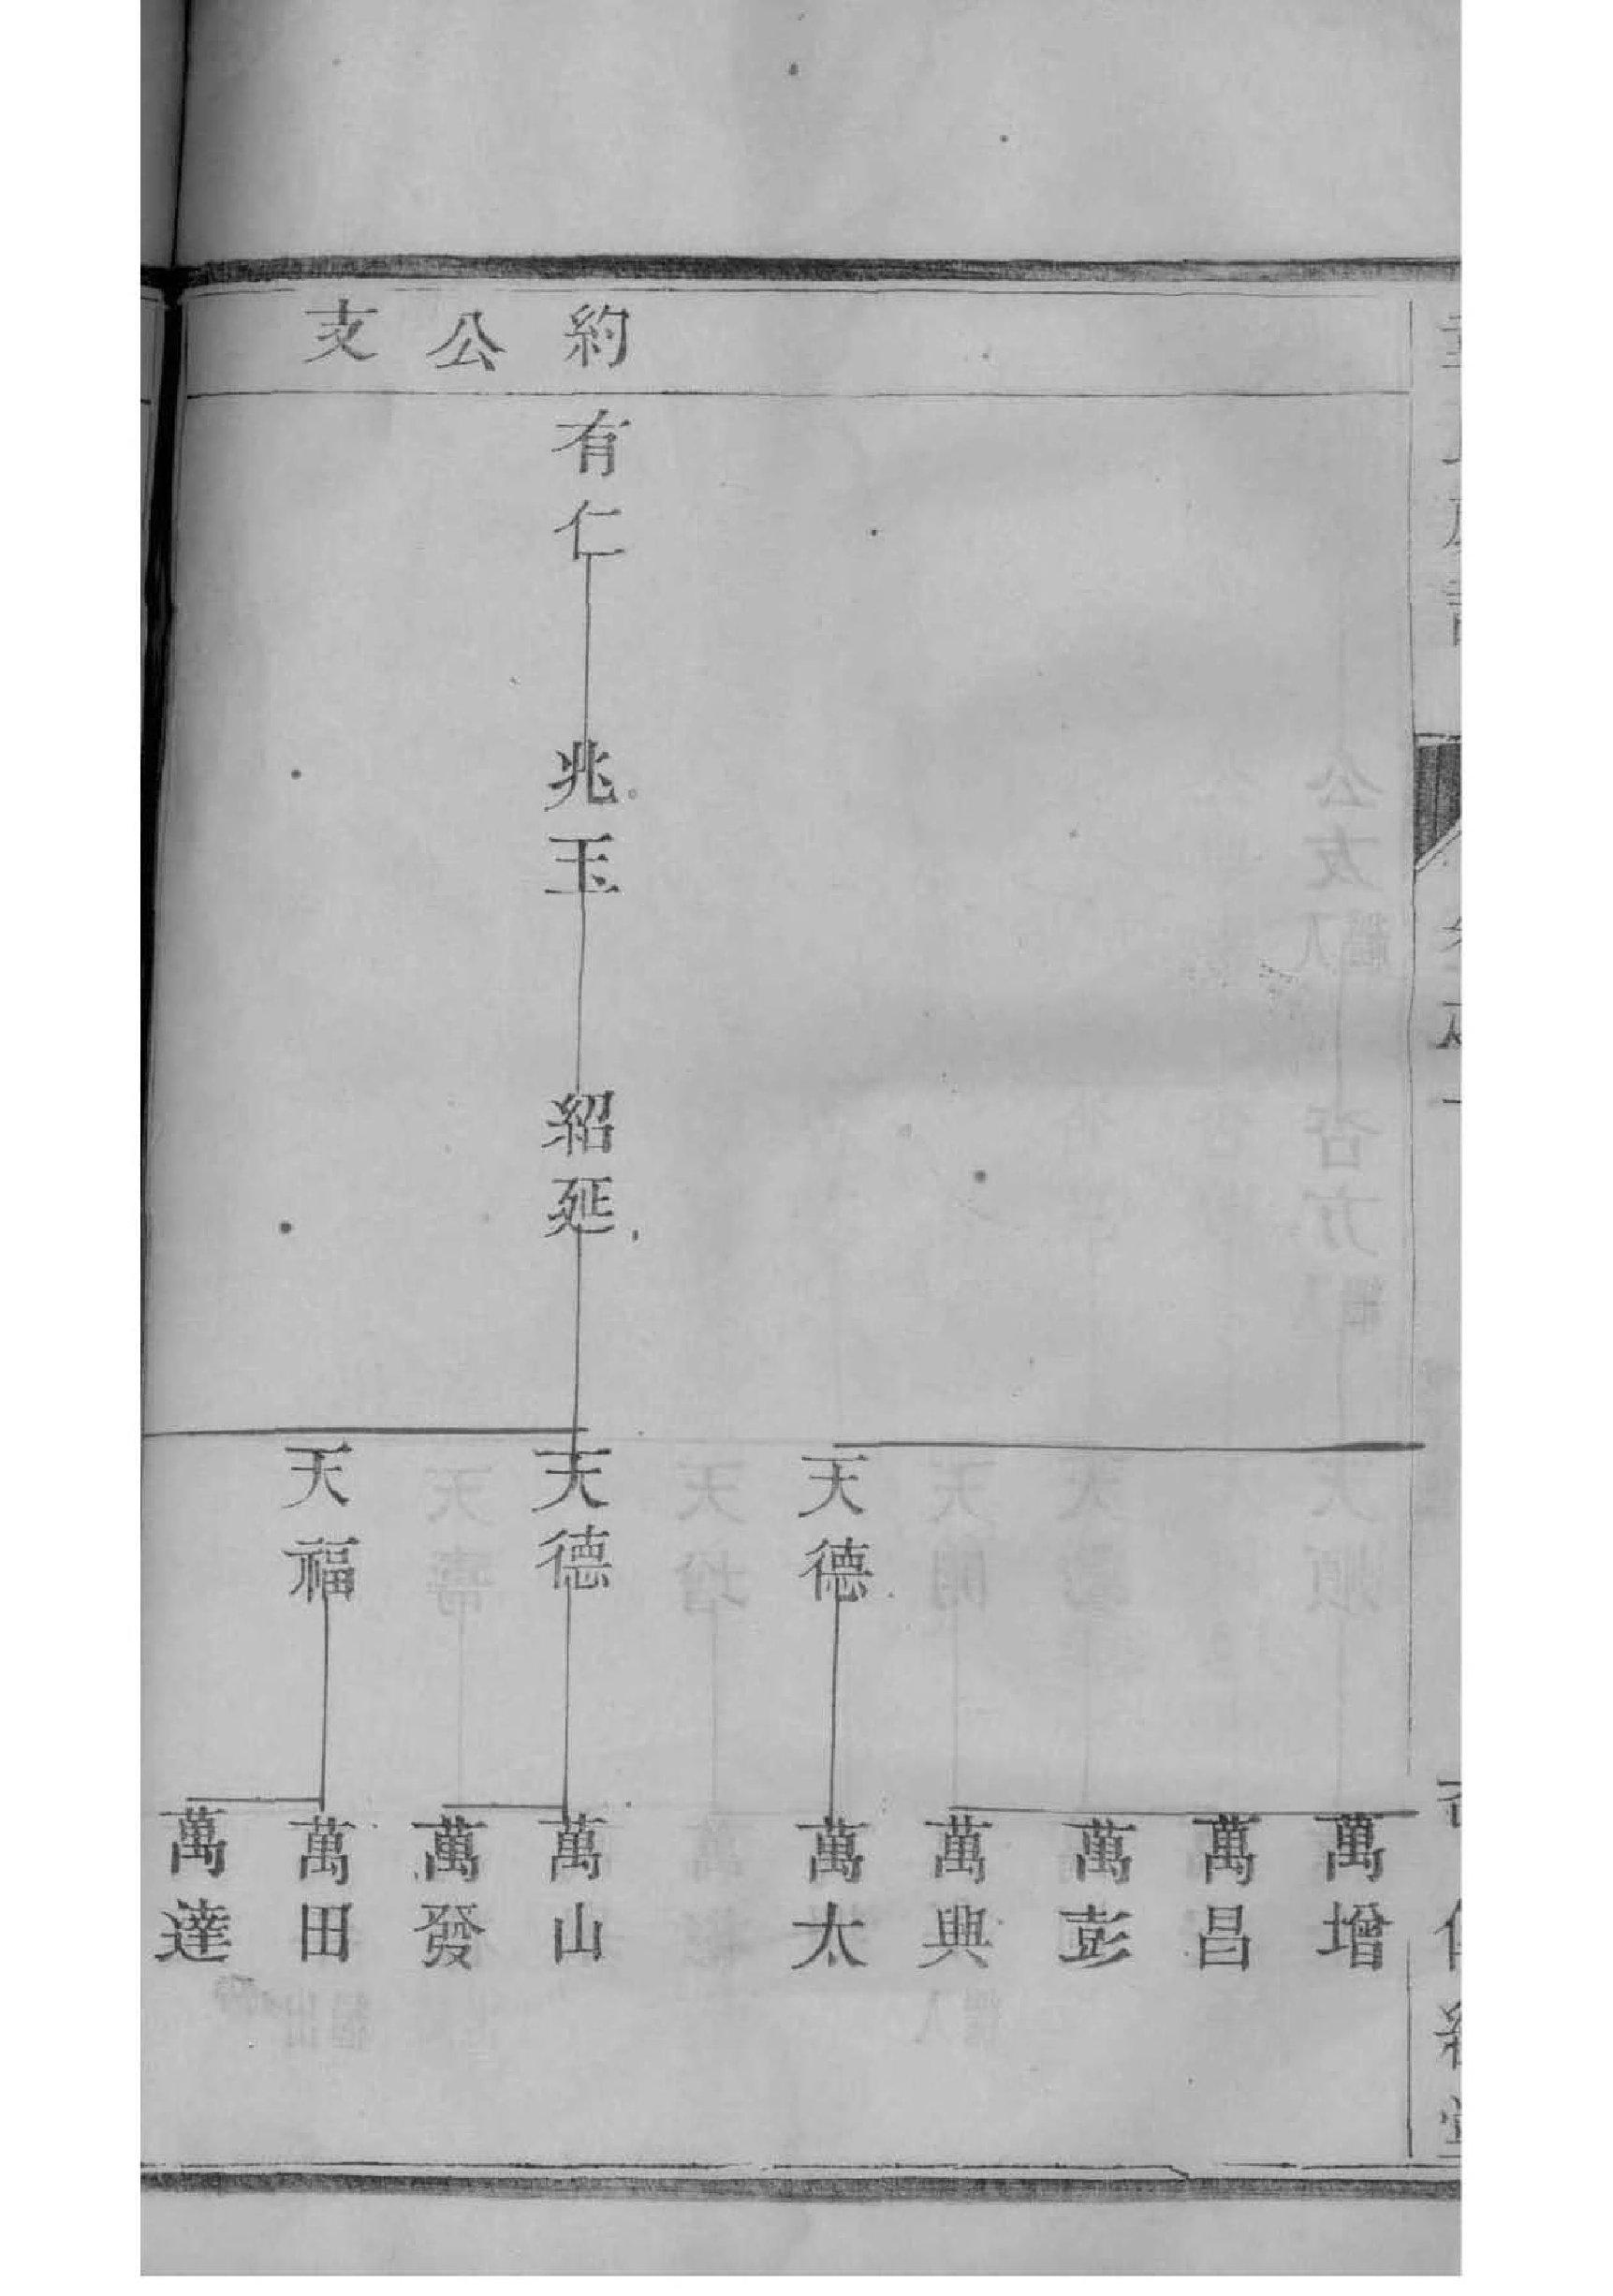 約公支
有仁
兆玉
紹延
天德
天德
天福
萬增
萬昌
萬彭
萬興
萬太
萬山
萬發
萬田
萬達